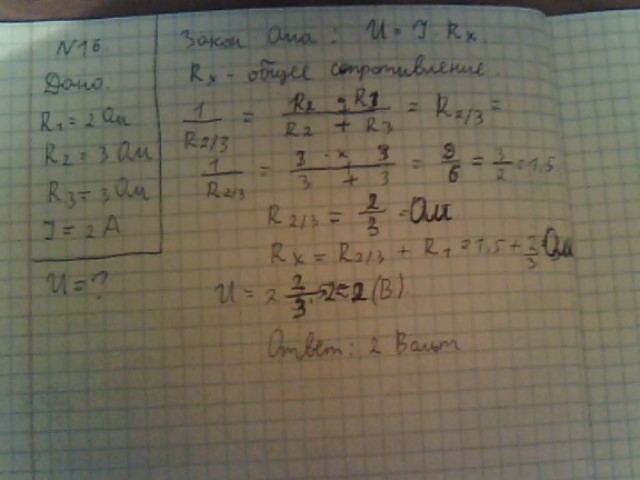 N16.
Дано
R1 = 2 Ом
R2 = 3 Ом
R3 = 3 Ом
I = 2 А
U = ?
Закон Ома: U = I · Rx.
Rx - общее сопротивление.
1/R2/3 = R2 · R3 / R2 + R3 = R2/3 =
1/R2/3 = 3 · x 3 / 3 + 3 = 9/6 = 3/2 = 1,5
R2/3 = 2/3 = Ом
Rx = R2/3 + R1 = 1,5 + 2/3 Ом
U = 2 2/3 = 2 (В)
Ответ: 2 Вольт